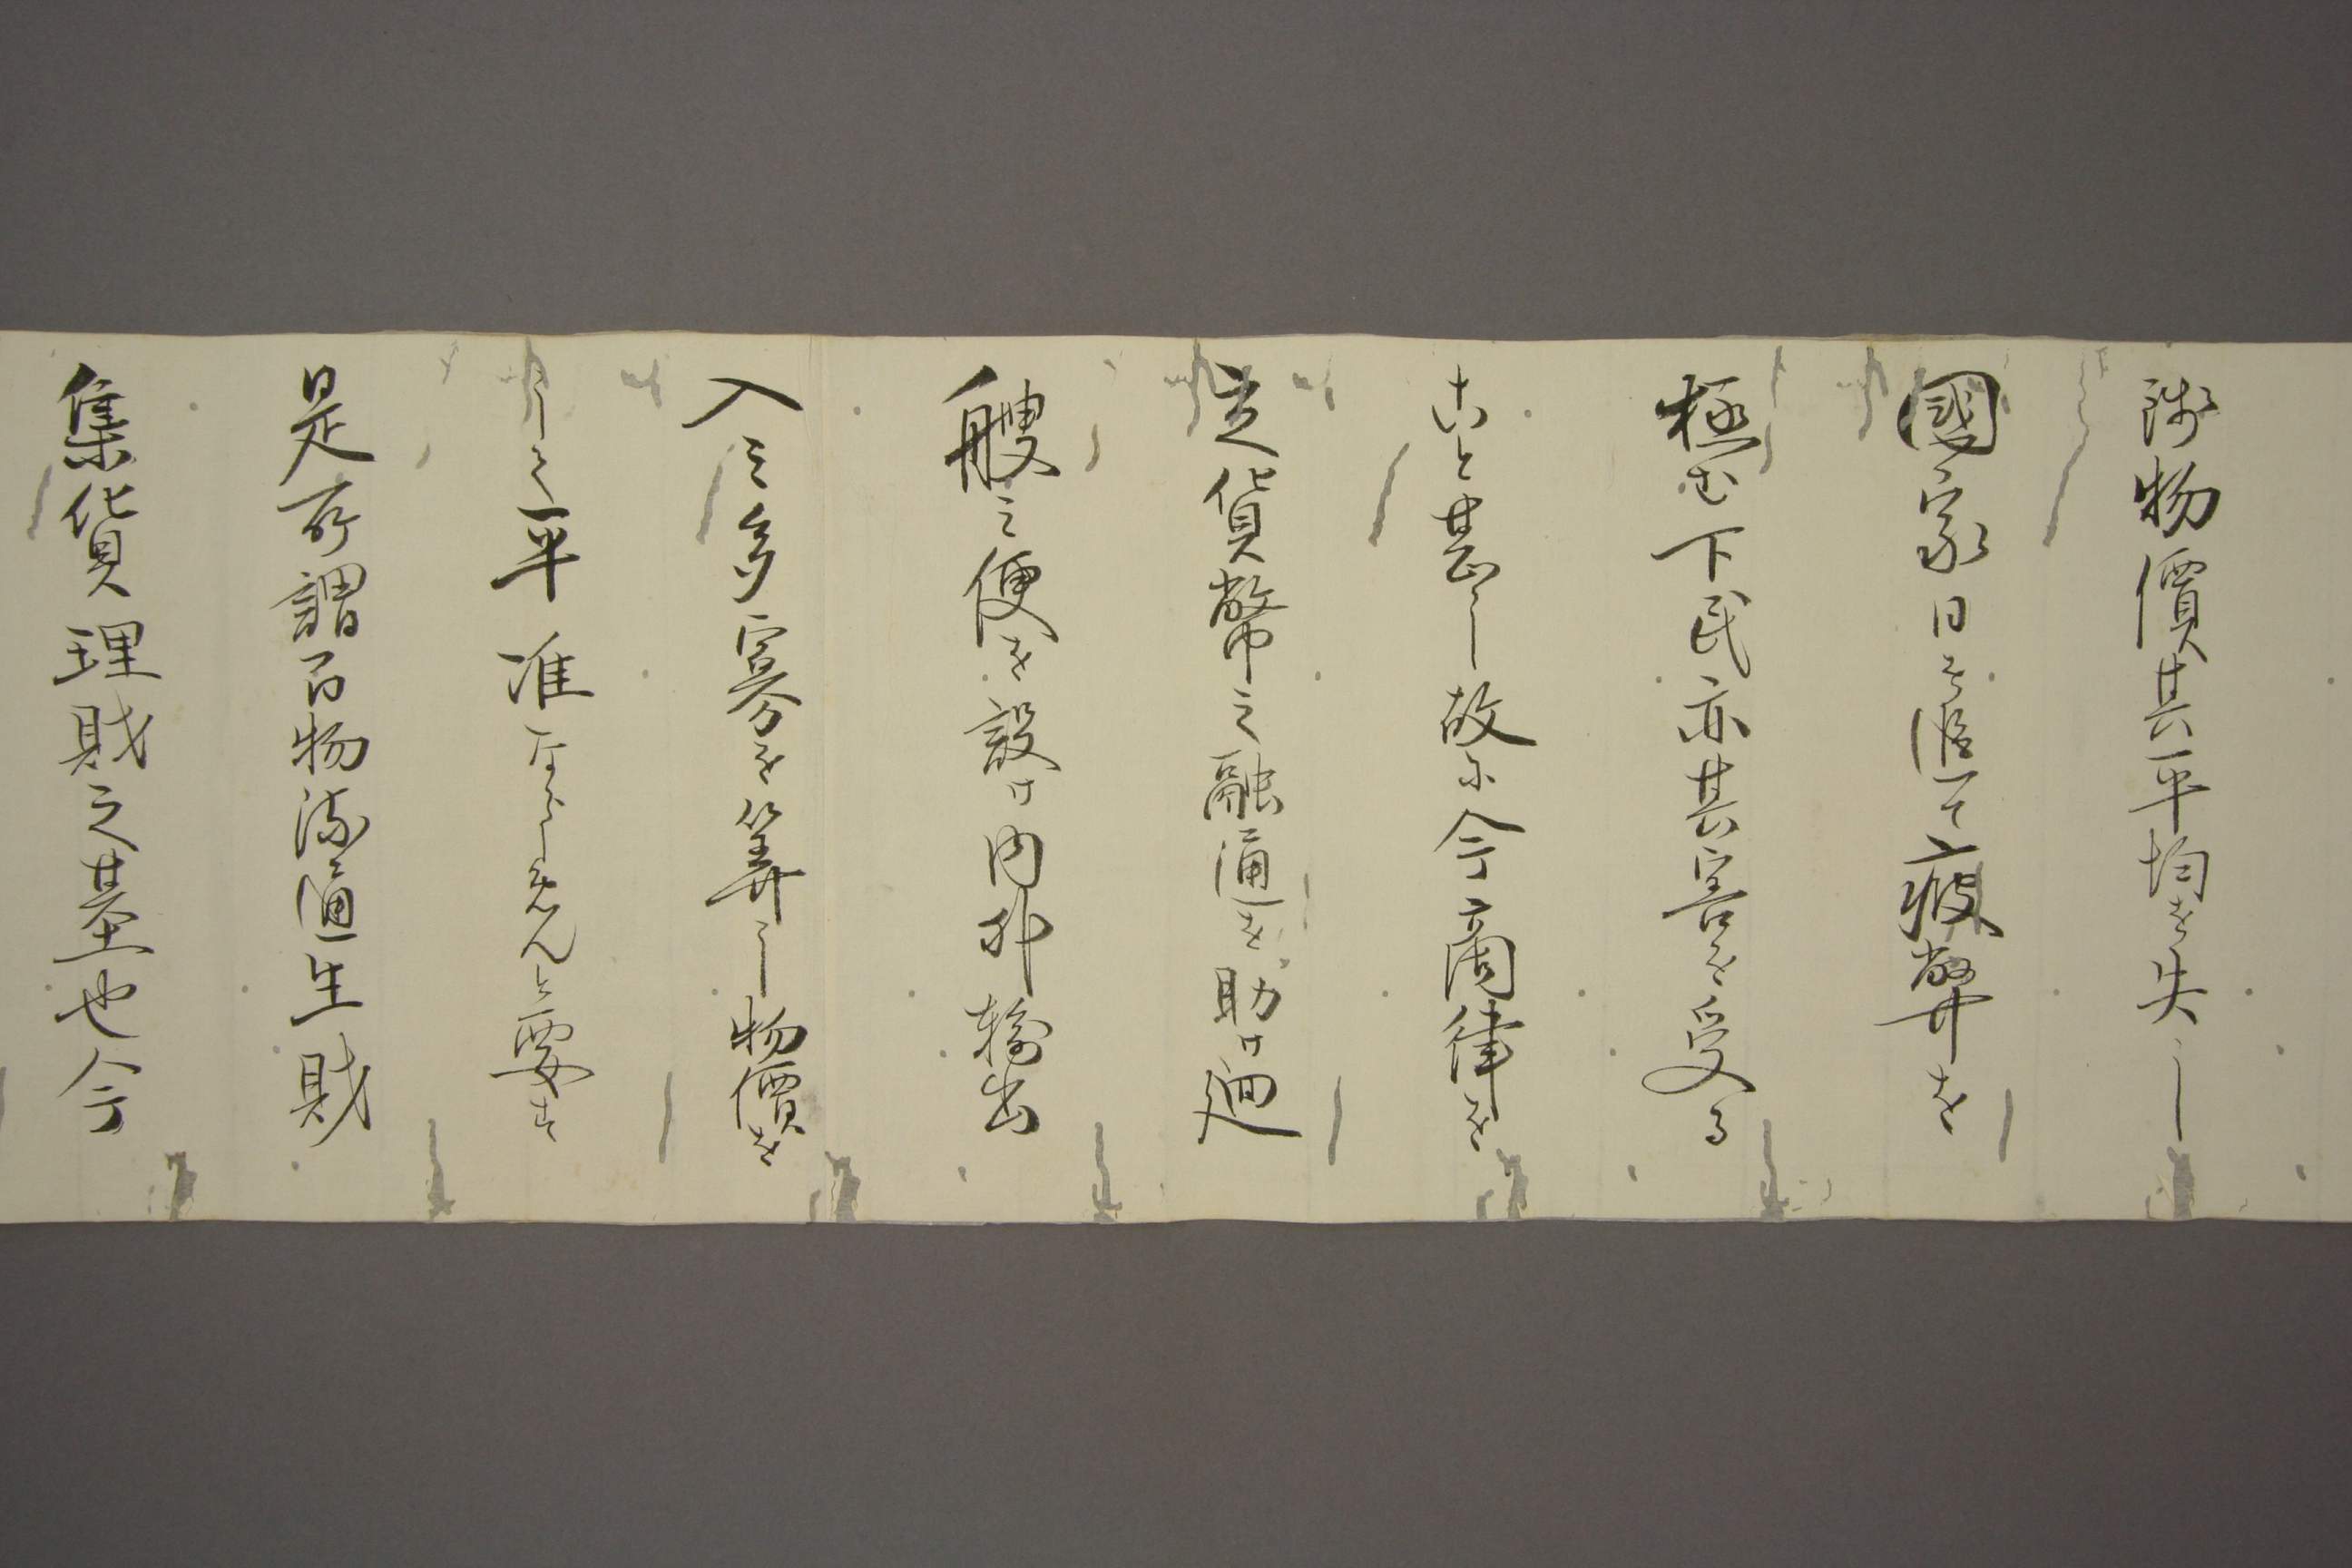 践物價其平均を失し
國家日を追て疲弊を
極む下民亦其害を受る
こと甚し故に今商律を
定貨幣之融通を助け廻
艘之便を設け内外輸出
入之多寡を算し物價を
して平准ならしめんと要す
是所謂百物流通生財
集貨理財之基也今